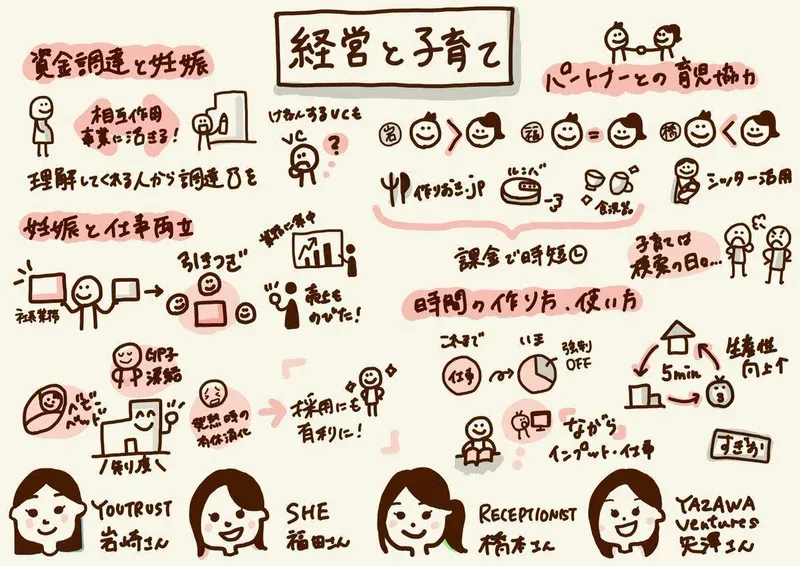 経営と子育て
資金調達と妊娠
相互作用
事業に活きる!
理解してくれる人から調達
けねんするVCも
VC
?
パートナーとの育児協力
岩
>
福
=
橋
<
作りおき.jp
ルンバ
食洗器
シッター活用
課金で時短
子育ては
模索の日々…
妊娠と仕事両立
社長業務
引きつぎ
業務に集中
売上も
のびた!
ベビー
ベッド
制度
発熱時の
有休消化
採用にも
有利に!
時間の作り方、使い方
これまで
仕事
いま
強制
OFF
ながら
インプット・仕事
5min
生産性
向上↑
すぎお
YOUTRUST
岩崎さん
SHE
福田さん
RECEPTIONIST
橋本さん
YAZAWA
Ventures
矢澤さん